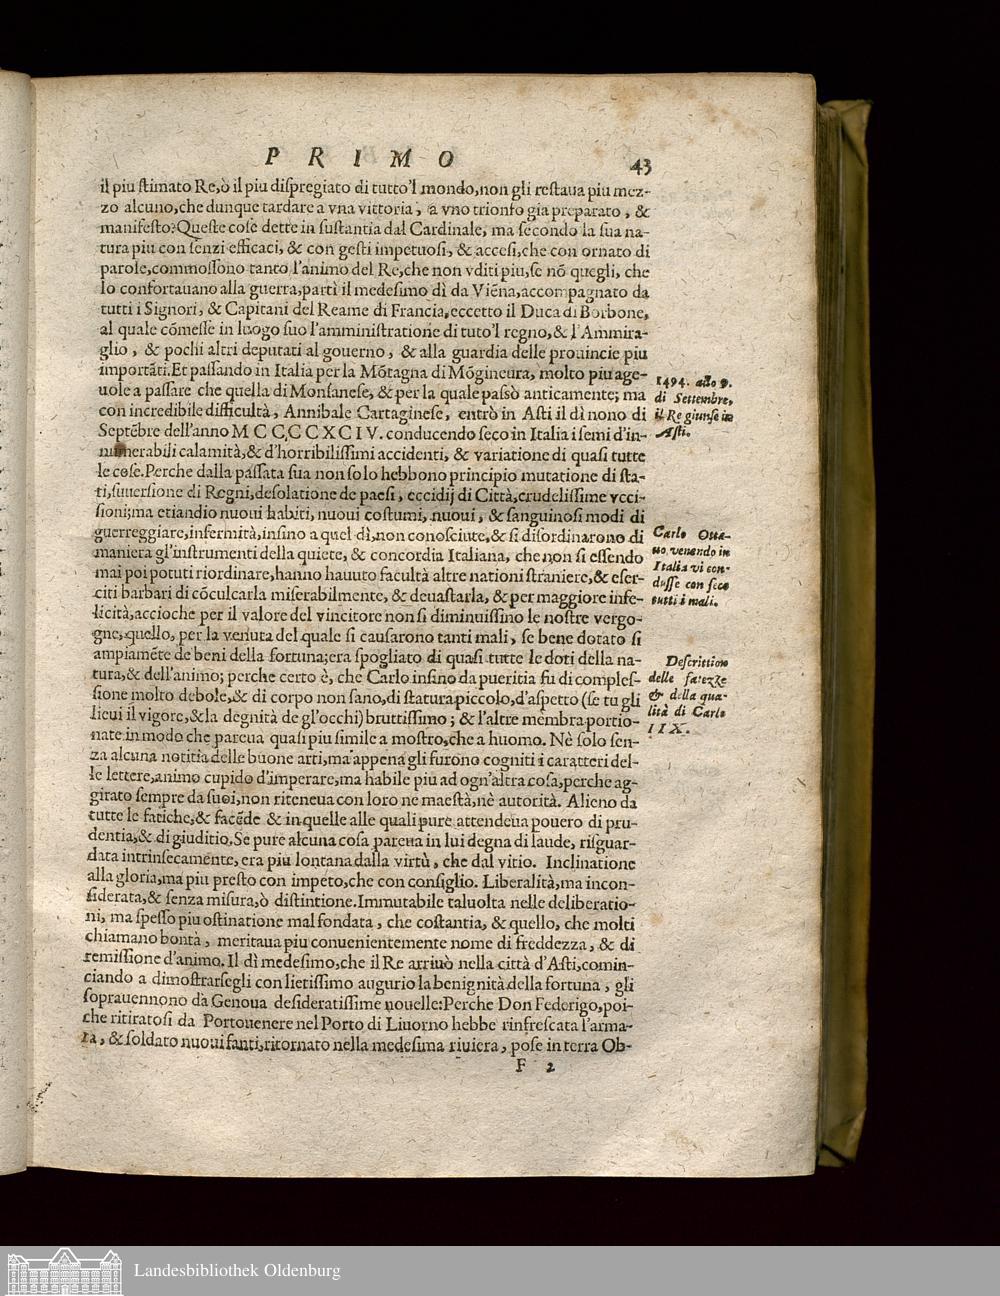 PRIMO 43
il piu ſtimato Re, ò il piu diſpregiato di tutto'l mondo, non gli reſtaua piu mez-
zo alcuno, che dunque tardare a vna vittoria, a vno trionfo gia preparato, &
manifeſto? Queſte coſe dette in ſuſtantia dal Cardinale, ma ſecondo la ſua na-
tura piu con ſenzi efficaci, & con geſti impetuoſi, & acceſi, che con ornato di
parole, commoſſono tanto l'animo del Re, che non vditi piu, ſe nõ quegli, che
lo confortauano alla guerra, partì il medeſimo dì da Viẽna, accompagnato da
tutti i Signori, & Capitani del Reame di Francia, eccetto il Duca di Borbone,
al quale cõmeſſe in luogo ſuo l'amminiſtratione di tuto'l regno, & l'Ammira-
glio, & pochi altri deputati al gouerno, & alla guardia delle prouincie piu
importãti. Et paſſando in Italia per la Mõtagna di Mõgineura, molto piu age-
uole a paſſare che quella di Monſaneſe, & per la quale paſsò anticamente; ma
con incredibile difficultà, Annibale Cartagineſe, entrò in Aſti il dì nono di
Septẽbre dell'anno MCCCCXCIV. conducendo ſeco in Italia i ſemi d'in-
numerabili calamità, & d'horribiliſſimi accidenti, & variatione di quaſi tutte
le coſe. Perche dalla paſſata ſua non ſolo hebbono principio mutatione di ſta-
ti, ſuuerſione di Regni, deſolatione de paeſi, eccidij di Città, crudeliſſime vcci-
ſioni; ma etiandio nuoui habiti, nuoui coſtumi, nuoui, & ſanguinoſi modi di
guerreggiare, infermità, inſino a quel dì, non conoſciute, & ſi diſordinarono di
maniera gl'inſtrumenti della quiete, & concordia Italiana, che non ſi eſſendo
mai poi potuti riordinare, hanno hauuto facultà altre nationi ſtraniere, & eſer-
citi barbari di cõculcarla miſerabilmente, & deuaſtarla, & per maggiore infe-
licità, accioche per il valore del vincitore non ſi diminuiſſino le noſtre vergo-
gne, quello, per la venuta del quale ſi cauſarono tanti mali, ſe bene dotato ſi
ampiamẽte de beni della fortuna; era ſpogliato di quaſi tutte le doti della na-
tura, & dell'animo; perche certo è, che Carlo inſino da pueritia fu di compleſ-
ſione molto debole, & di corpo non ſano, di ſtatura piccolo, d'aſpetto (ſe tu gli
lieui il vigore, & la degnità de gl'occhi) bruttiſſimo; & l'altre membra portio-
nate in modo che pareua quaſi piu ſimile a moſtro, che a huomo. Nè ſolo ſen-
za alcuna notitia delle buone arti, ma appena gli furono cogniti i caratteri del-
le lettere, animo cupido d'imperare, ma habile piu ad ogn'altra coſa, perche ag-
girato ſempre da ſuoi, non riteneua con loro ne maeſtà, nè autorità. Alieno da
tutte le fatiche, & facẽde & in quelle alle quali pure attendeua pouero di pru-
dentia, & di giuditio. Se pure alcuna coſa pareua in lui degna di laude, riſguar-
data intrinſecamente, era piu lontana dalla virtù, che dal vitio. Inclinatione
alla gloria, ma piu preſto con impeto, che con conſiglio. Liberalità, ma incon-
ſiderata, & ſenza miſura, ò diſtintione. Immutabile taluolta nelle deliberatio-
ni, ma ſpeſſo piu oſtinatione mal fondata, che coſtantia, & quello, che molti
chiamano bontà, meritaua piu conuenientemente nome di freddezza, & di
remiſſione d'animo. Il dì medeſimo, che il Re arriuò nella città d'Aſti, comin-
ciando a dimoſtrarſegli con lietiſſimo augurio la benignità della fortuna, gli
ſoprauennono da Genoua deſideratiſſime nouelle: Perche Don Federigo, poi-
che ritiratoſi da Portouenere nel Porto di Liuorno hebbe rinfreſcata l'arma-
ta, & ſoldato nuoui fanti, ritornato nella medeſima riuiera, poſe in terra Ob-
F 2
1494. allo 9.
di Settembre,
il Re giunſe in
Aſti.
Carlo Otta-
uo, venendo in
Italia vi con-
duſſe con ſeco
tutti i mali.
Deſcrittione
delle fatezze
& della qua-
lità di Carlo
IIX.
Landesbibliothek Oldenburg